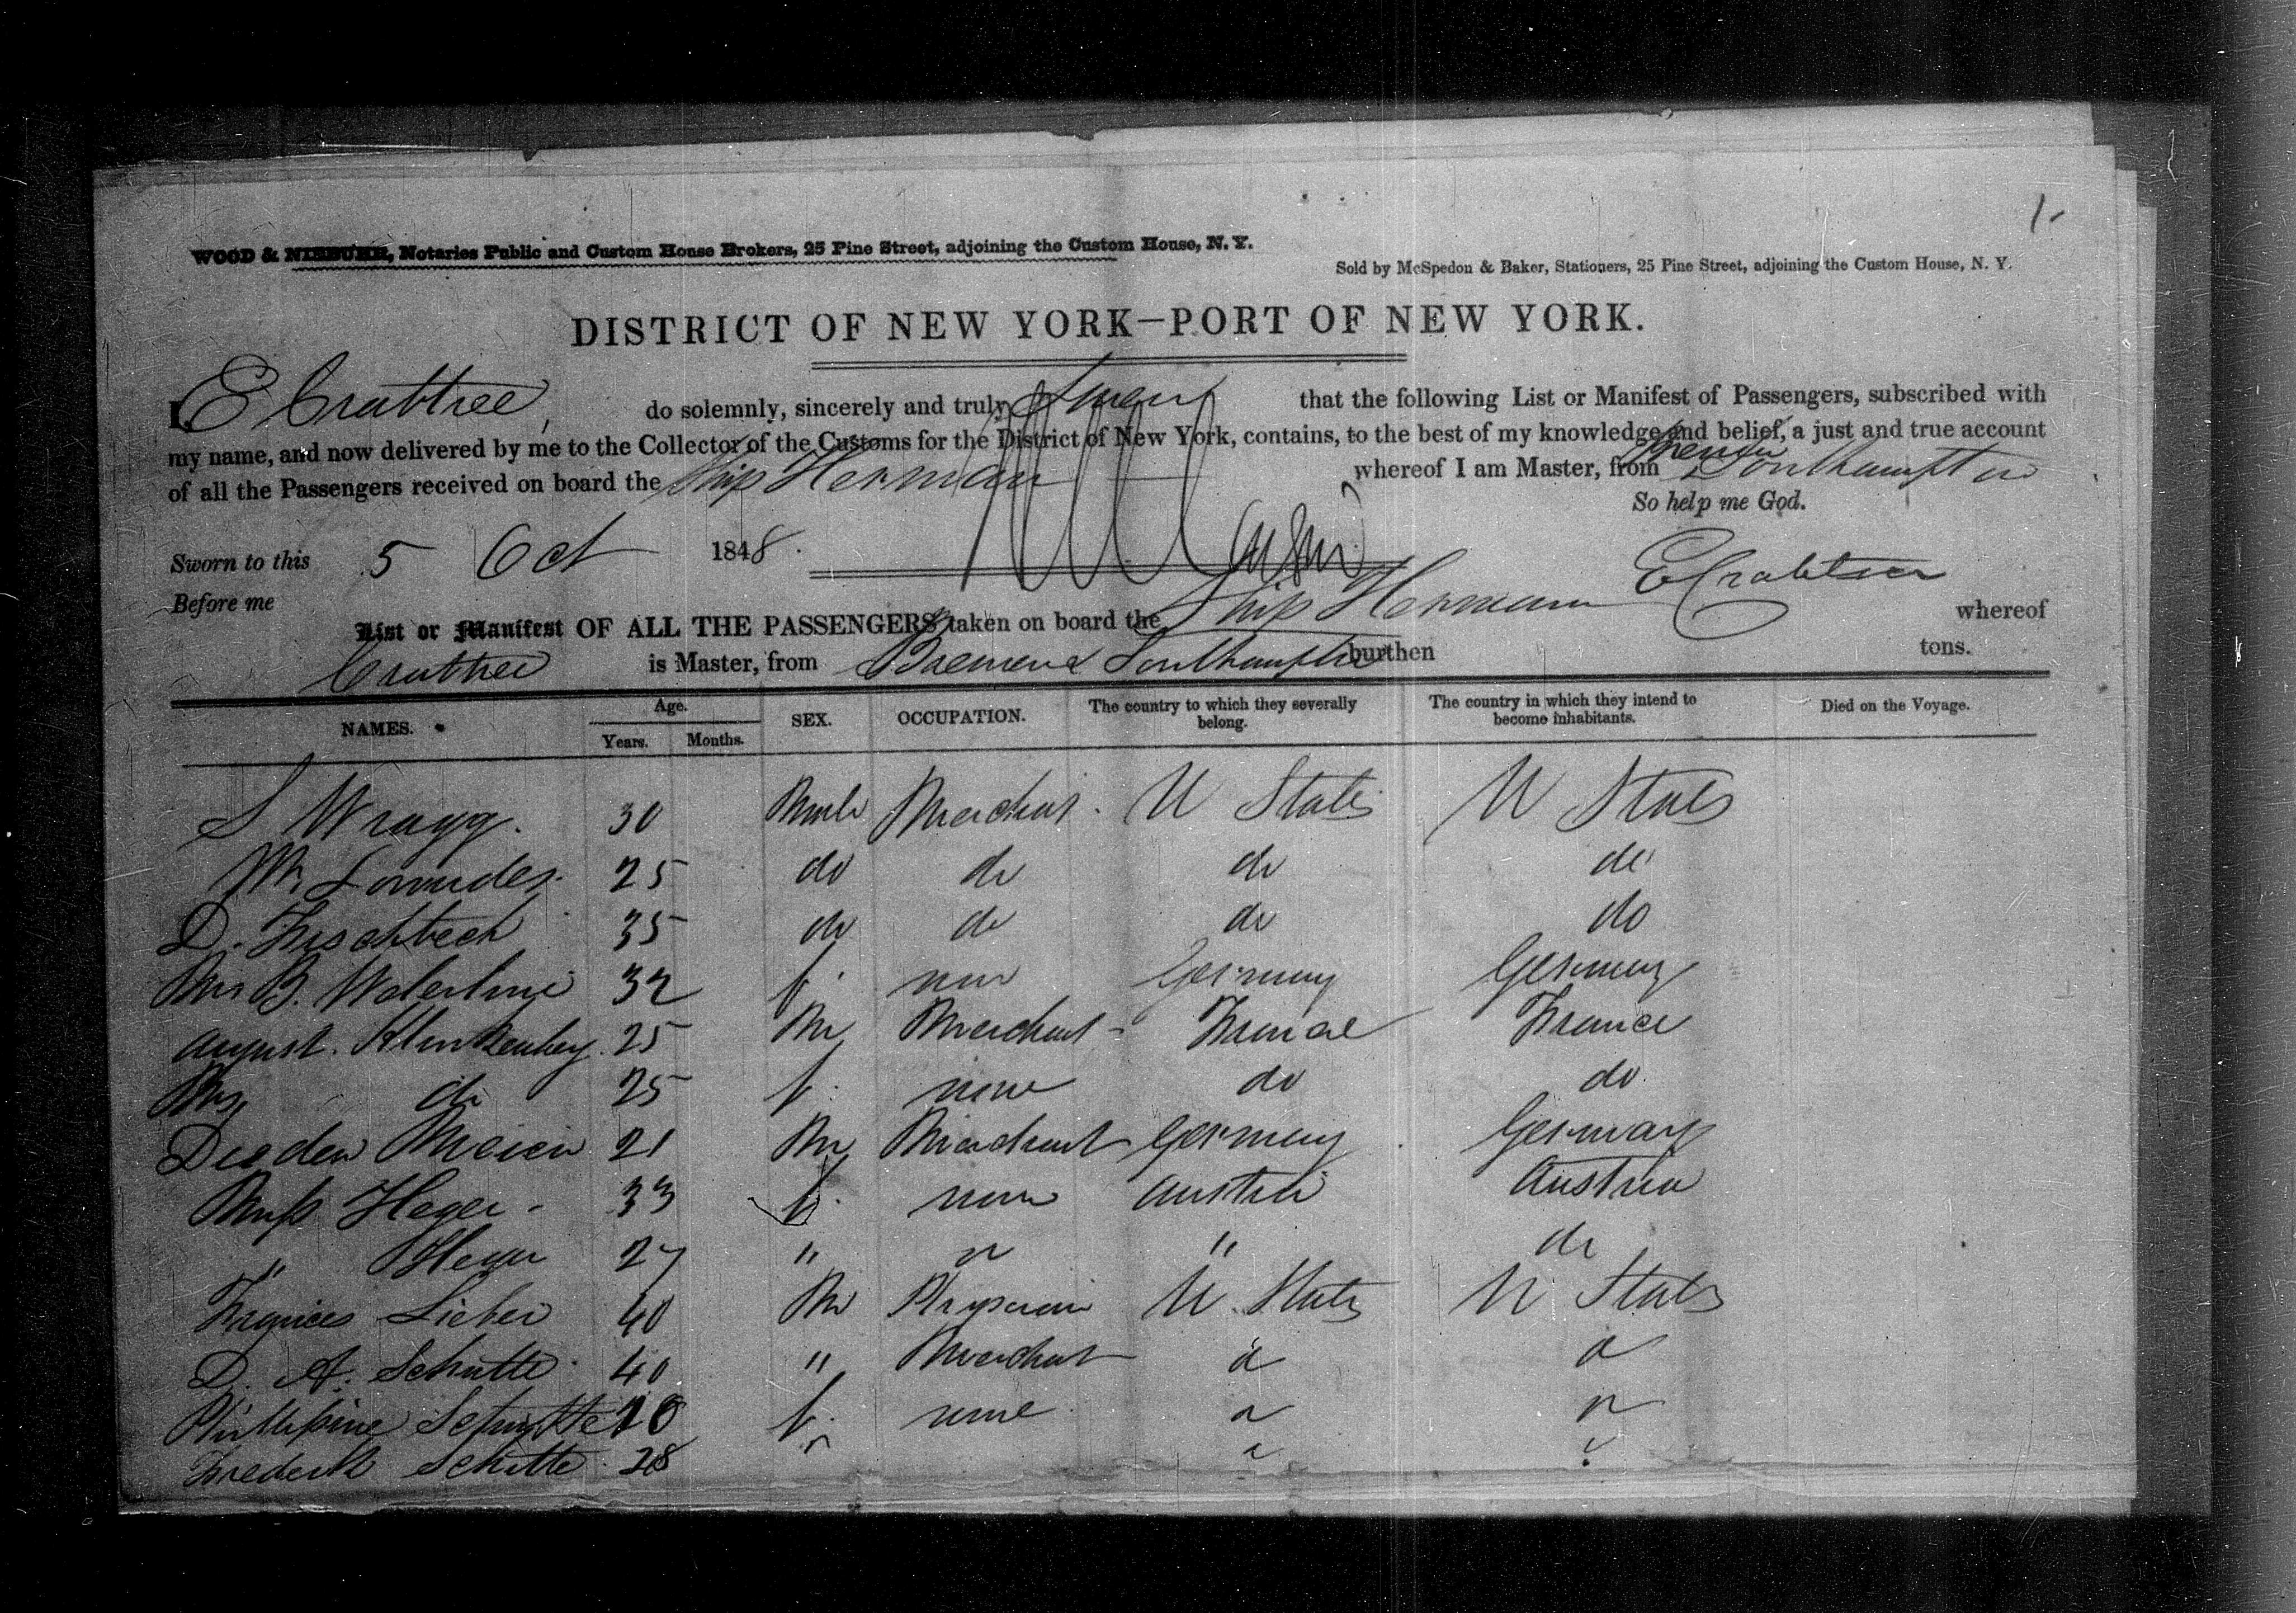 1.
WOOD & NIEBUHR, Notaries Public and Custom House Brokers, 25 Pine Street, adjoining the Custom House, N. Y.
Sold by McSpedon & Baker, Stationers, 25 Pine Street, adjoining the Custom House, N. Y.
DISTRICT OF NEW YORK—PORT OF NEW YORK.
I, E Crabtree, do solemnly, sincerely and truly Swear that the following List or Manifest of Passengers, subscribed with
my name, and now delivered by me to the Collector of the Customs for the District of New York, contains, to the best of my knowledge and belief, a just and true account
of all the Passengers received on board the Ship Herman whereof I am Master, from Bremen Southampton
So help me God.
Sworn to this 5 Oct 1848.
Before me
E Crabtree
List or Manifest OF ALL THE PASSENGERS taken on board the Ship Hermann whereof
Crabtree is Master, from Bremen & Southampton burthen tons.
NAMES. Age. Years. Months. SEX. OCCUPATION. The country to which they severally belong. The country in which they intend to become inhabitants. Died on the Voyage.
S Wragg. 30 Male Merchant. U States U States
Wm Lowndes. 25 do do do do
D. Fischbeck 35 do do do do
Mrs B. 32 f. none Germany Germany
August. Klinkenberg. 25 M Merchant France France
Mrs do 25 f. none do do
Meier 21 M Merchant Germany Germany
Miss Heger 33 f. none Austria Austria
" Heger 27 " " " do
Lieber 40 M Physician U. States U States
D. A. Schutte 40 " Merchant
Phillipine Schutte f. none
Frederik Schutte 28